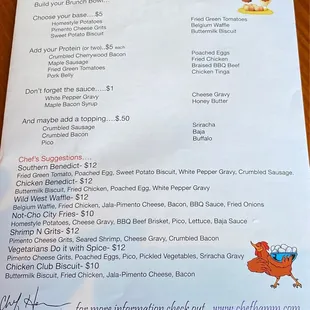 Build your Brunch Bowl...
Choose your base....$5
Homestyle Potatoes
Pimento Cheese Grits
Sweet Potato Biscuit
Fried Green Tomatoes
Belgium Waffle
Buttermilk Biscuit
Add your Protein or two..$5 each
Crumbled Cherrywood Bacon
Maple Sausage
Fried Green Tomatoes
Pork Belly
Poached Eggs
Fried Chicken
Braised BBQ Beef
Chicken Tinga
Don't forget the sauce.....$1
White Pepper Gravy
Maple Bacon Syrup
Cheese Gravy
Honey Butter
And maybe add a topping....$.50
Crumbled Sausage
Crumbled Bacon
Pico
Sriracha
Baja
Buffalo
Chef's Suggestions....
Southern Benedict- $12
Fried Green Tomato, Poached Egg, Sweet Potato Biscuit, White Pepper Gravy, Crumbled Sausage
Chicken Benedict- $12
Buttermilk Biscuit, Fried Chicken, Poached Egg, White Pepper Gravy
Wild West Waffle- $12
Belgium Waffle, Fried Chicken, Jala-Pimento Cheese, Bacon, BBQ Sauce, Fried Onions
Not-Cho City Fries- $10
Homestyle Potatoes, Cheesy Gravy, BBQ Beef Brisket, Pico, Lettuce, Baja Sauce
Shrimp N Grits- $12
Pimento Cheese Grits, Seared Shrimp, Cheese Gravy, Crumbled Bacon
Vegetarians Do it with Spice- $12
Pimento Cheese Grits, Poached Eggs, Pico, Pickled Vegetables, Sriracha Gravy
Chicken Club Biscuit- $10
Buttermilk Biscuit, Fried Chicken, Jala-Pimento Cheese, Bacon
Chef
for more information check out www.chefhamm.com